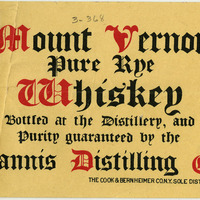 3-368
Mount Vernon
Pure Rye
Whiskey
Bottled at the Distillery, and
Purity guaranteed by the
annis Distilling
THE COOK & BERNHEIMER CO. N.Y. SOLE DIST